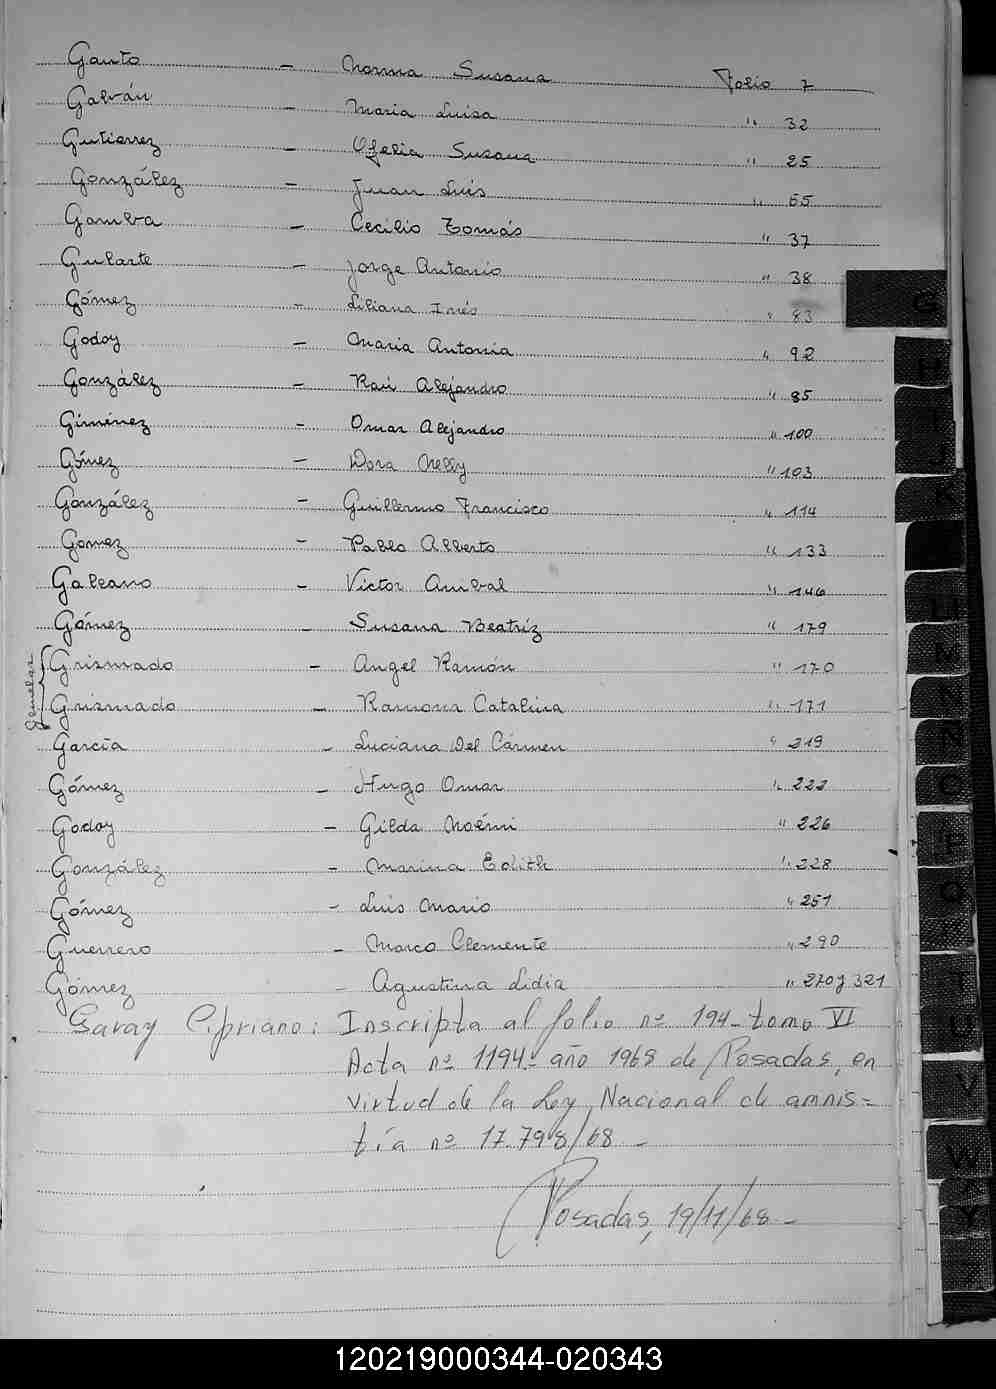 Gauto - Norma Susana Folio 7
Galván - Maria Luisa " 32
Gutierrez - Ofelia Susana " 25
González - Juan Luis " 65
Gamba - Cecilio Tomás " 37
Gularte - Jorge Antonio " 38
Gómez - Liliana Inés " 83
Godoy - Maria Antonia " 92
González - Raúl Alejandro " 85
Giménez - Omar Alejandro " 100
Gómez - Dora Nelly " 103
González - Guillermo Francisco " 114
Gomez - Pablo Alberto " 133
Galeano - Victor Anibal " 146
Gómez - Susana Beatríz " 179
Gemelos
Grismado - Angel Ramón " 170
Grismado - Ramona Catalina " 171
García - Luciana Del Cármen " 219
Gómez - Hugo Omar " 222
Godoy - Gilda Noémi " 226
González - Marina Edith " 228
Gómez - Luis Mario " 251
Guerrero - Marco Clemente " 290
Gómez - Agustina Lidia " 270 y 321
Garay Cipriano: Inscripta al folio nº 194 - tomo VI
Acta nº 1194 - año 1968 de Posadas, en
virtud de la Ley Nacional de amnis=
tía nº 17.798/68 -
Posadas, 19/11/68 -
G
H
I
J
K
L
LL
M
N
Ñ
O
P
Q
R
S
T
U
V
W
X
Y
120219000344-020343